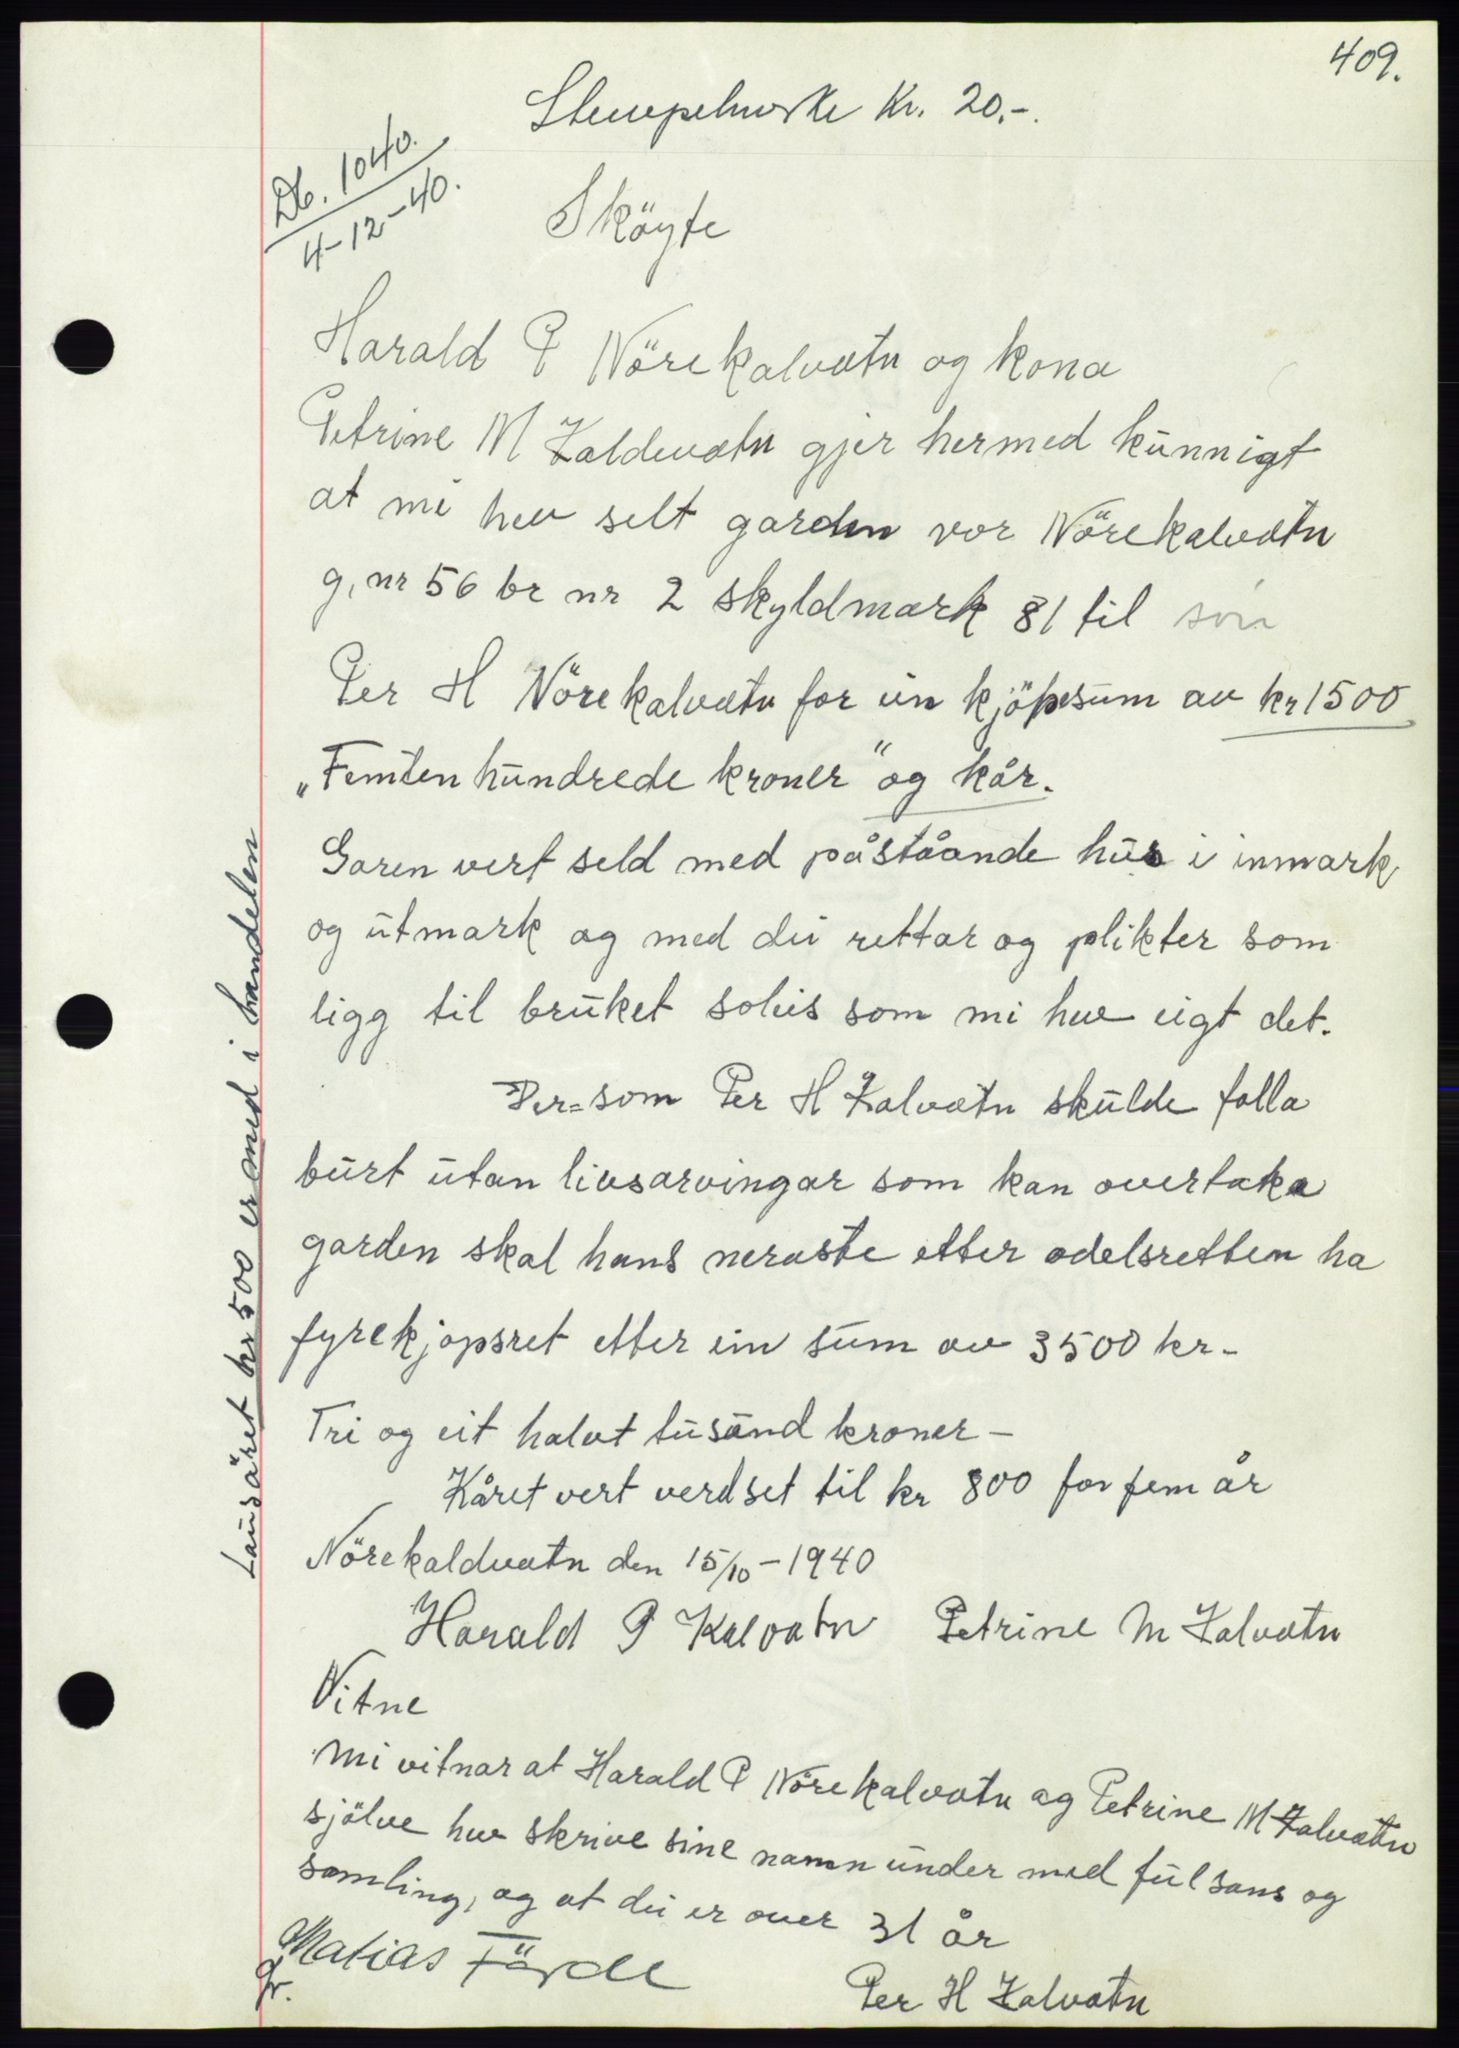 409.
Stempelmerke Kr. 20.-.
Db. 1040.
4-12-40.
Sköyte
Harald P Nörekalvatn og kona
Petrine M Kaldevatn gjer hermed kunnigt
at mi hev selt garden vor Nörekalvatn
g, nr 56 br nr 2 skyldmark 81 til son
Per H Nörekalvatn for ein kjöpesum av kr 1500
"Femten hundrede kroner" og kår.
Garen vert seld med påstående hus i inmark
og utmark og med dei rettar og plikter som
ligg til bruket soleis som mi hev eigt det.
Der=som Per H Kalvatn skulde falla
burt utan livsarvingar som kan overtaka
garden skal hans neraste etter odelsretten ha
fyrekjopsret etter ein sum av 3500 kr-
Tri og eit halvt tusund kroner-
Kåret vert verdset til kr 800 for fem år
Nörekaldvatn den 15/10-1940
Harald P Kalvatn Petrine M Kalvatn
Vitne
Mi vitnar at Harald P Nörekalvatn og Petrine M Kalvatn
sjölve hev skrive sine namn under med ful sans og
samling, og at dei er over 21 år
Matias Förde
Per H Kalvatn
Lausöret kr 500 er med i handelen